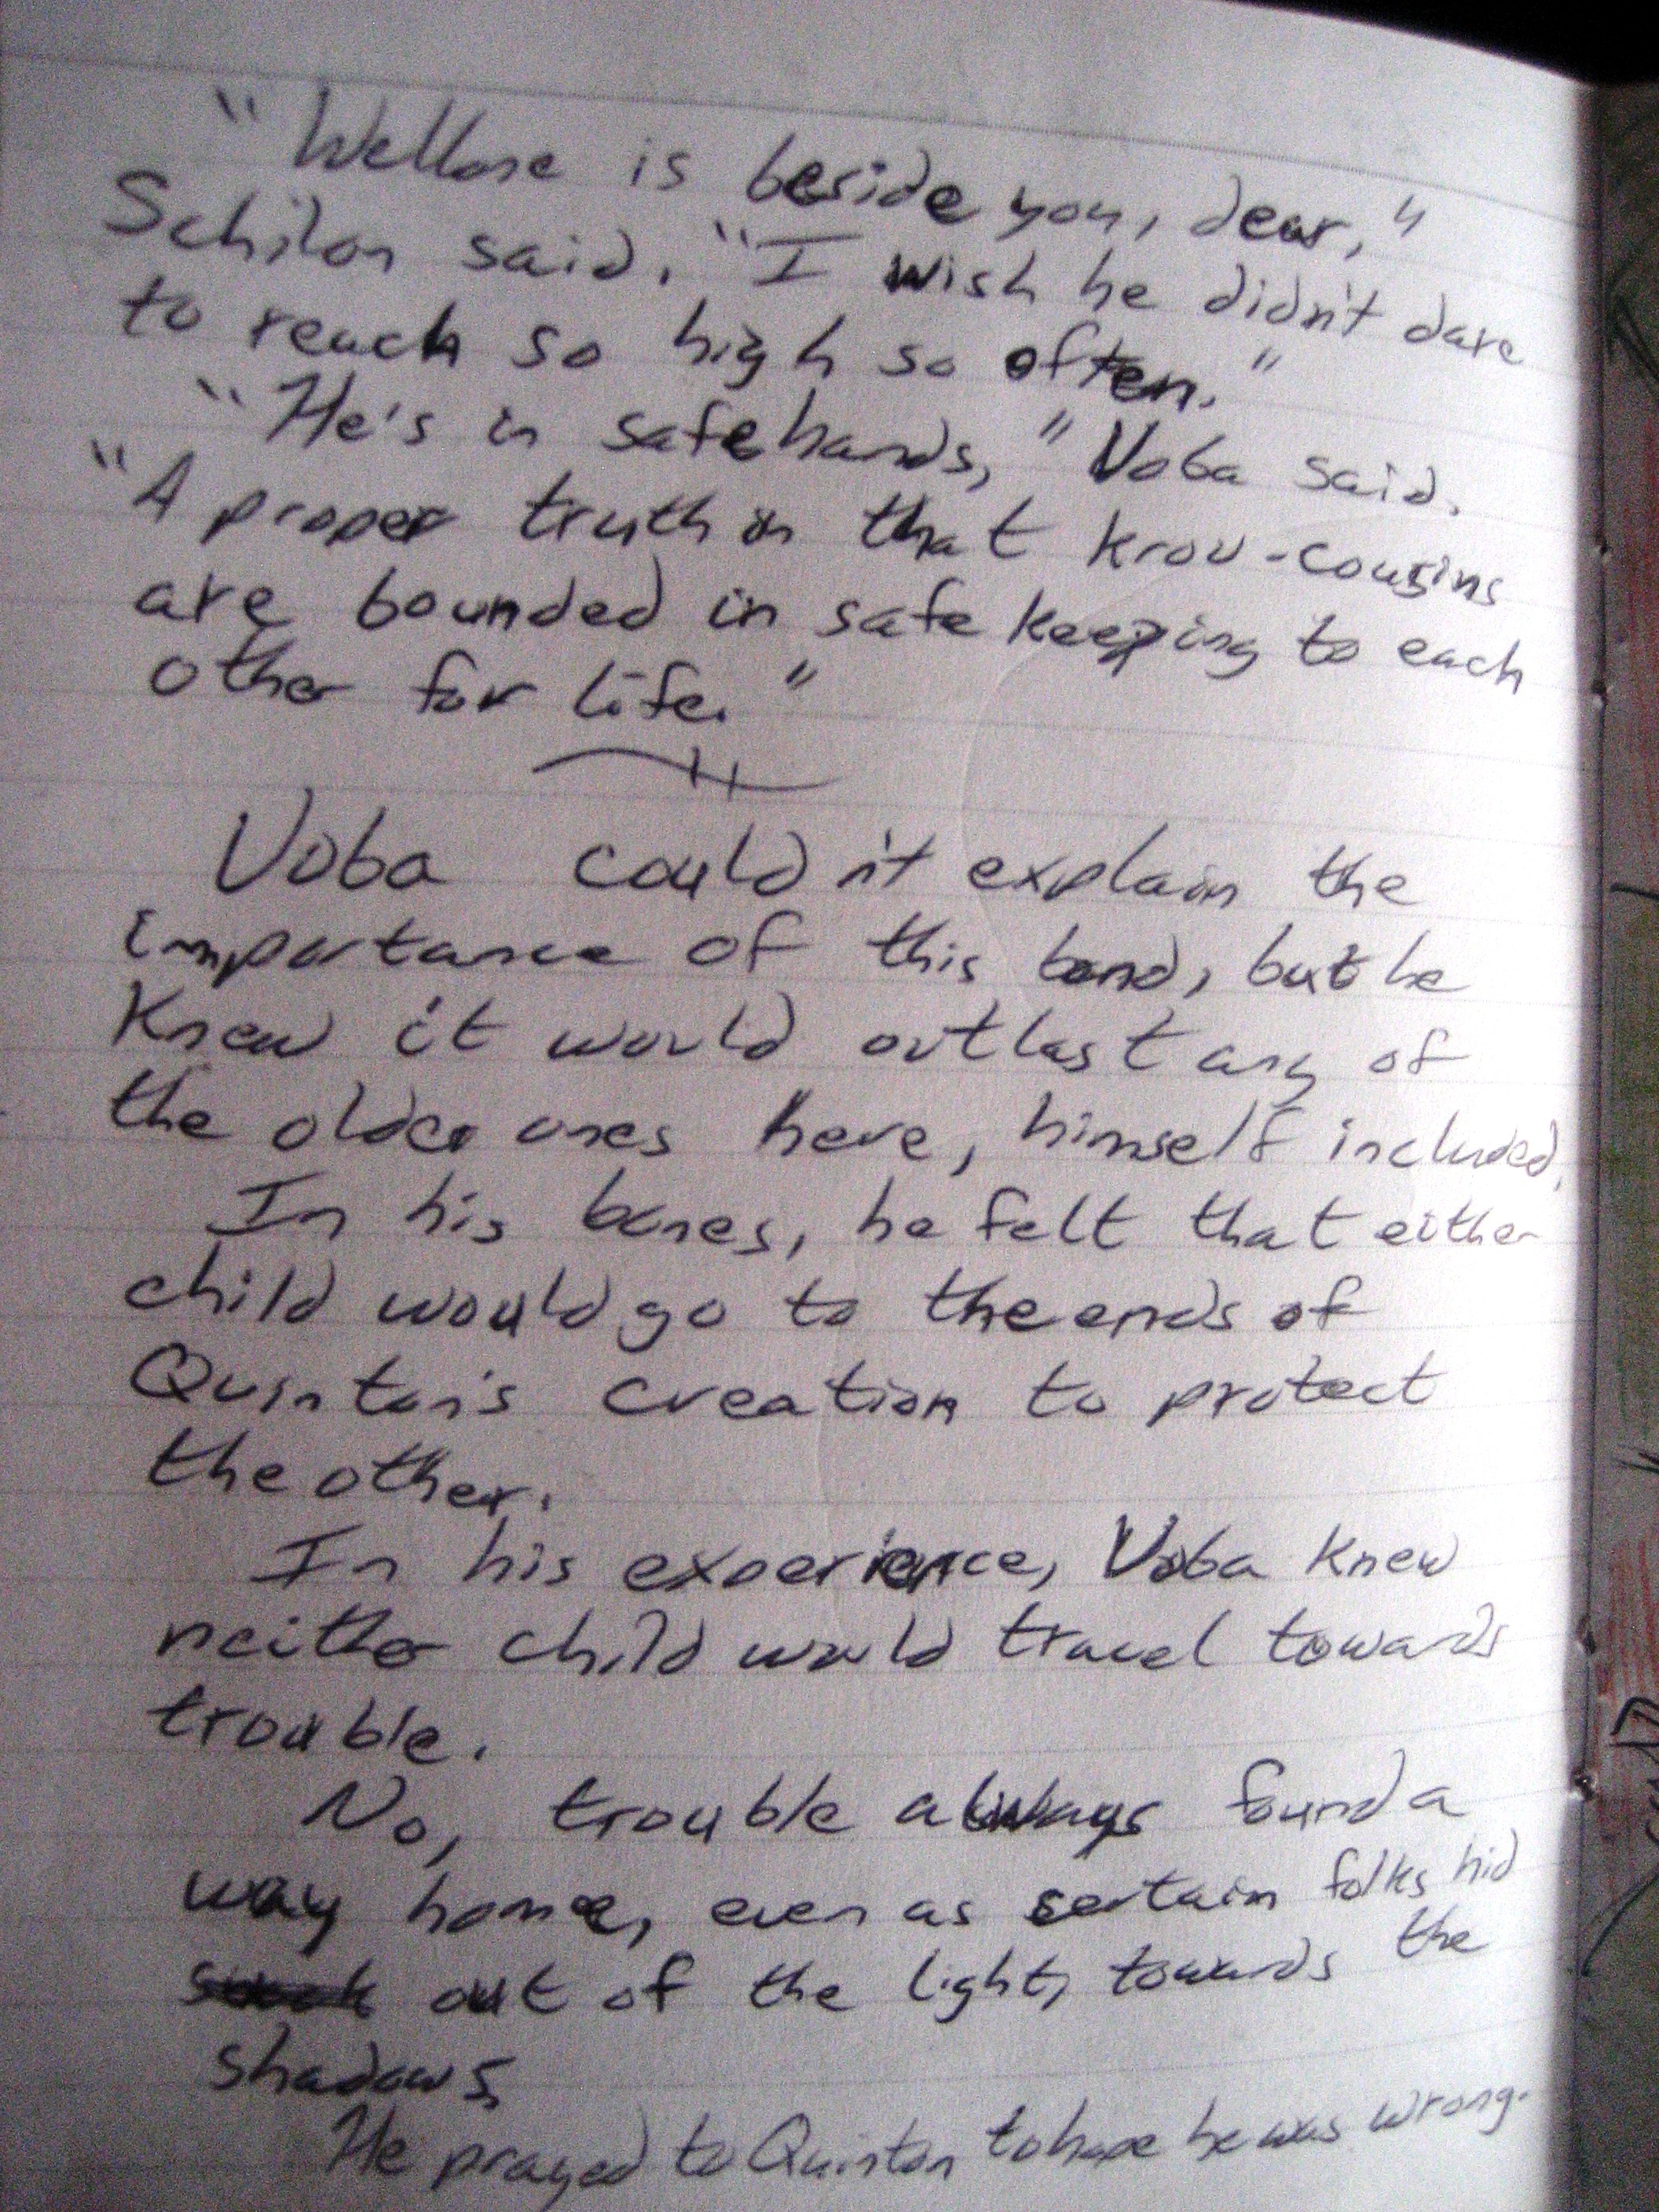 "Wellose is beside you, dear,"
Schilon said. "I wish he didn't dare
to reach so high so often."
"He's in safe hands," Voba said.
"A proper truth in that krov-cousins
are bounded in safe keeping to each
other for life."
Voba couldn't explain the
importance of this bond, but he
knew it would outlast any of
the older ones here, himself included.
In his bones, he felt that either
child would go to the ends of
Quinton's creation to protect
the other.
In his experience, Voba knew
neither child would travel towards
trouble.
No, trouble always found a
way home, even as certain folks hid
out of the light, towards the
shadows
He prayed to Quinton to hope he was wrong.